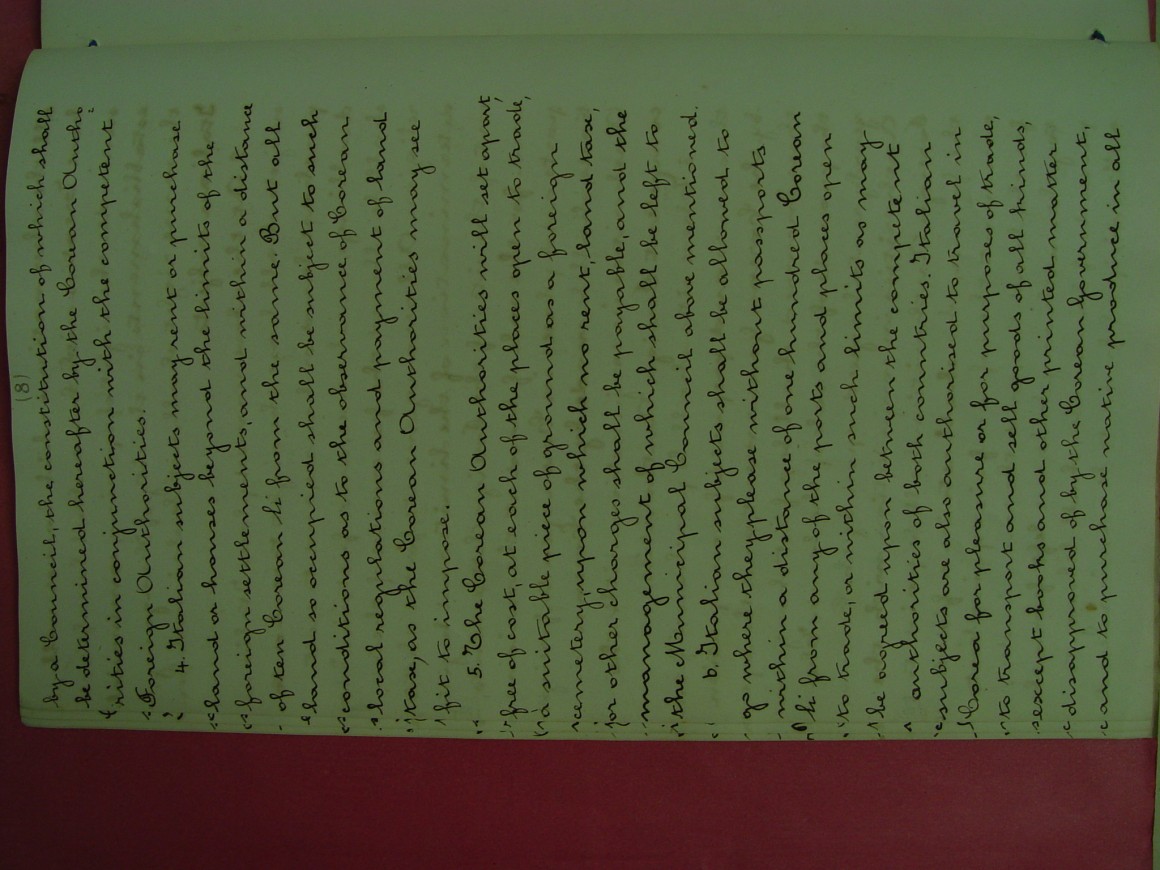 (8)
by a Council, the constitution of which shall
be determined hereafter by the Corean Autho=
rities in conjunction with the competent
Foreign Authorities.
4. Italian subjects may rent or purchase
land or houses beyond the limits of the
foreign settlements, and within a distance
of ten Corean li from the same. But all
land so occupied shall be subject to such
conditions as to the observance of Corean
local regulations and payment of land
tax, as the Corean Authorities may see
fit to impose.
5. The Corean Authorities will set apart,
free of cost, at each of the places open to trade,
a suitable piece of ground as a foreign
cemetery, upon which no rent, land tax,
or other charges shall be payable, and the
management of which shall be left to
the Municipal Council above mentioned.
6. Italian subjects shall be allowed to
go where they please without passports
within a distance of one hundred Corean
li from any of the ports and places open
to trade, or within such limits as may
be agreed upon between the competent
authorities of both countries. Italian
subjects are also authorised to travel in
Corea for pleasure or for purposes of trade,
to transport and sell goods of all kinds,
except books and other printed matter
disapproved of by the Corean Government,
and to purchase native produce in all